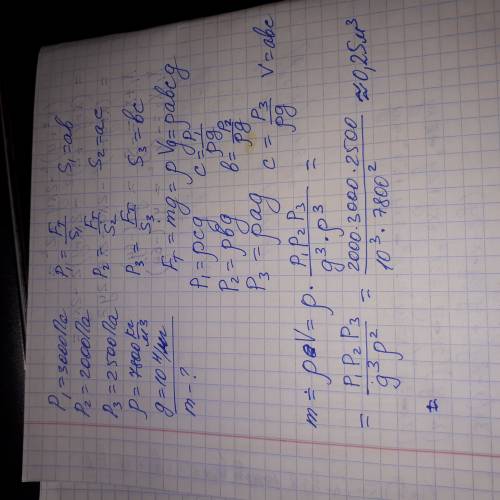 P₁ = 3000 Pa
P₂ = 2000 Pa
P₃ = 2500 Pa
ρ = 7800 кг/м³
g = 10 Н/кг
m - ?
P₁ = Fт/S₁ S₁ = ab
P₂ = Fт/S₂ S₂ = ac
P₃ = Fт/S₃ S₃ = bc
Fт = mg = ρVg = ρabcg
P₁ = ρcg c = P₁/ρg
P₂ = ρbg b = P₂/ρg
P₃ = ρag c = P₃/ρg V = abc
m = ρV = ρ · P₁P₂P₃/g³·ρ³ =
= P₁P₂P₃/g³ρ² = 2000·3000·2500/10³·7800² ≈ 0,25м³